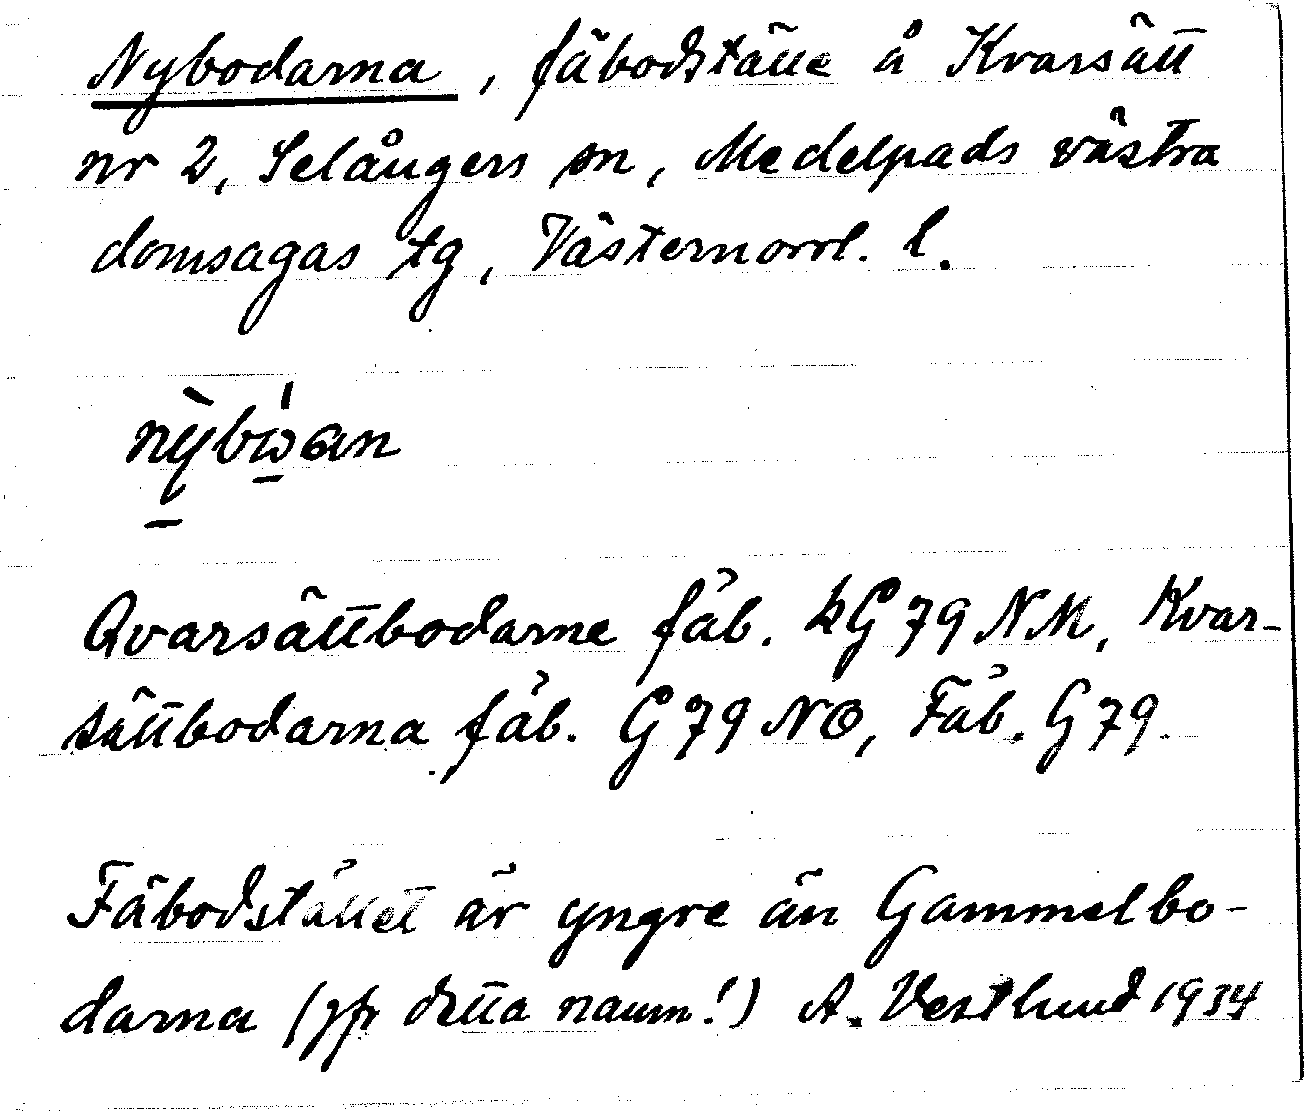 Nybodarna, fäbodställe å Kvarsätt
nr 2, Selångers sn, Medelpads västra
domsagas tg, Västernorrl. l.
Qvarsättbodarne fäb. kG79NM, Kvar-
sättbodarna fäb. G79NO, Fäb. G79.
Fäbodstället är yngre än Gammelbo-
darna (jfr detta namn!) A. Vestlund 1934